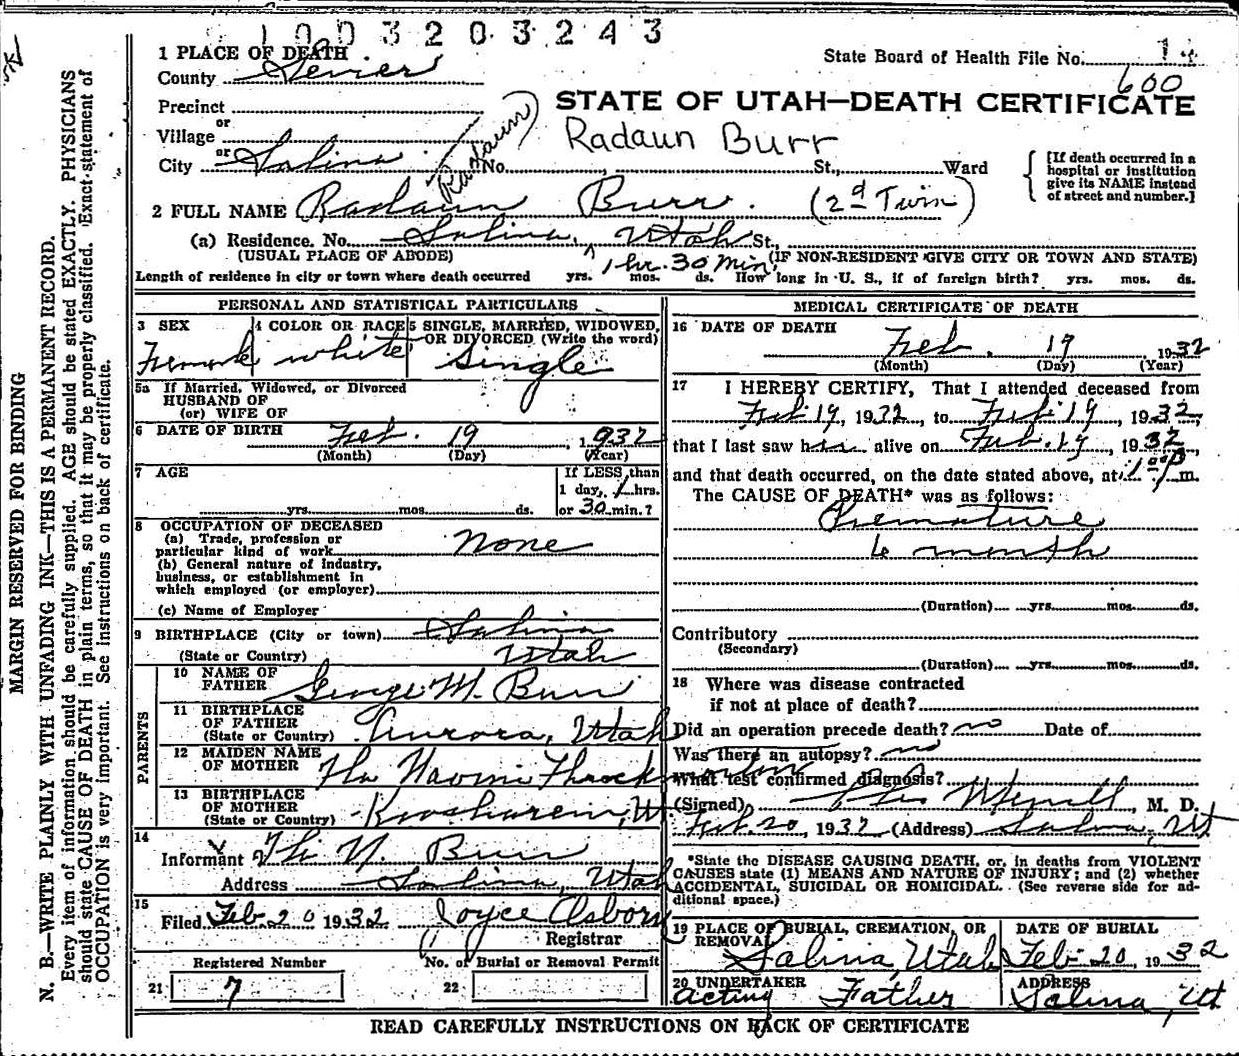 1 0 0 3 2 0 3 2 4 3
State Board of Health File No. 14
600
STATE OF UTAH—DEATH CERTIFICATE
Radaun Burr
1 PLACE OF DEATH
County Sevier
Precinct
or
Village
or
City Salina No. St., Ward
(Radaun)
[If death occurred in a
hospital or institution
give its NAME instead
of street and number.]
2 FULL NAME Radaun Burr. (2d Twin)
(a) Residence. No. Salina, Utah St.,
(USUAL PLACE OF ABODE) (IF NON-RESIDENT GIVE CITY OR TOWN AND STATE)
1 hr. 30 min.
Length of residence in city or town where death occurred yrs. mos. ds. How long in U. S., if of foreign birth? yrs. mos. ds.
PERSONAL AND STATISTICAL PARTICULARS
3 SEX
Female
4 COLOR OR RACE
white
5 SINGLE, MARRIED, WIDOWED,
OR DIVORCED (Write the word)
Single
5a If Married, Widowed, or Divorced
HUSBAND OF
(or) WIFE OF
6 DATE OF BIRTH Feb. 19, 1932
(Month) (Day) (Year)
7 AGE
yrs. mos. ds.
If LESS than
1 day, 1 hrs.
or 30 min.?
8 OCCUPATION OF DECEASED
(a) Trade, profession or
particular kind of work None
(b) General nature of industry,
business, or establishment in
which employed (or employer)
(c) Name of Employer
9 BIRTHPLACE (City or town) Salina
(State or Country) Utah
PARENTS
10 NAME OF
FATHER George M. Burr
11 BIRTHPLACE
OF FATHER
(State or Country) Aurora, Utah
12 MAIDEN NAME
OF MOTHER Ila Naomi Throckmorton
13 BIRTHPLACE
OF MOTHER
(State or Country) Koosharem, Ut
14
Informant N. Burr
Address Salina, Utah
15
Filed Feb 20 1932 Joyce Osborn
Registrar
Registered Number
21 7
No. of Burial or Removal Permit
22
MEDICAL CERTIFICATE OF DEATH
16 DATE OF DEATH
Feb. 19, 1932
(Month) (Day) (Year)
17 I HEREBY CERTIFY, That I attended deceased from
Feb 19, 1932, to Feb 19, 1932,
that I last saw her alive on Feb. 19, 1932
and that death occurred, on the date stated above, at 1:00 P m.
The CAUSE OF DEATH* was as follows:
Premature
6 month
(Duration) yrs. mos. ds.
Contributory
(Secondary)
(Duration) yrs. mos. ds.
18 Where was disease contracted
if not at place of death?
Did an operation precede death? no Date of
Was there an autopsy? no
What test confirmed diagnosis?
(Signed) Merrill, M. D.
Feb. 20, 1932 (Address) Salina, Ut
*State the DISEASE CAUSING DEATH, or, in deaths from VIOLENT
CAUSES state (1) MEANS AND NATURE OF INJURY; and (2) whether
ACCIDENTAL, SUICIDAL OR HOMICIDAL. (See reverse side for ad-
ditional space.)
19 PLACE OF BURIAL, CREMATION, OR
REMOVAL
Salina, Utah
DATE OF BURIAL
Feb 20, 1932
20 UNDERTAKER
acting Father
ADDRESS
Salina, Ut
READ CAREFULLY INSTRUCTIONS ON BACK OF CERTIFICATE
MARGIN RESERVED FOR BINDING
N. B.—WRITE PLAINLY WITH UNFADING INK—THIS IS A PERMANENT RECORD.
Every item of information should be carefully supplied. AGE should be stated EXACTLY. PHYSICIANS
should state CAUSE OF DEATH in plain terms, so that it may be properly classified. Exact statement of
OCCUPATION is very important. See instructions on back of certificate.